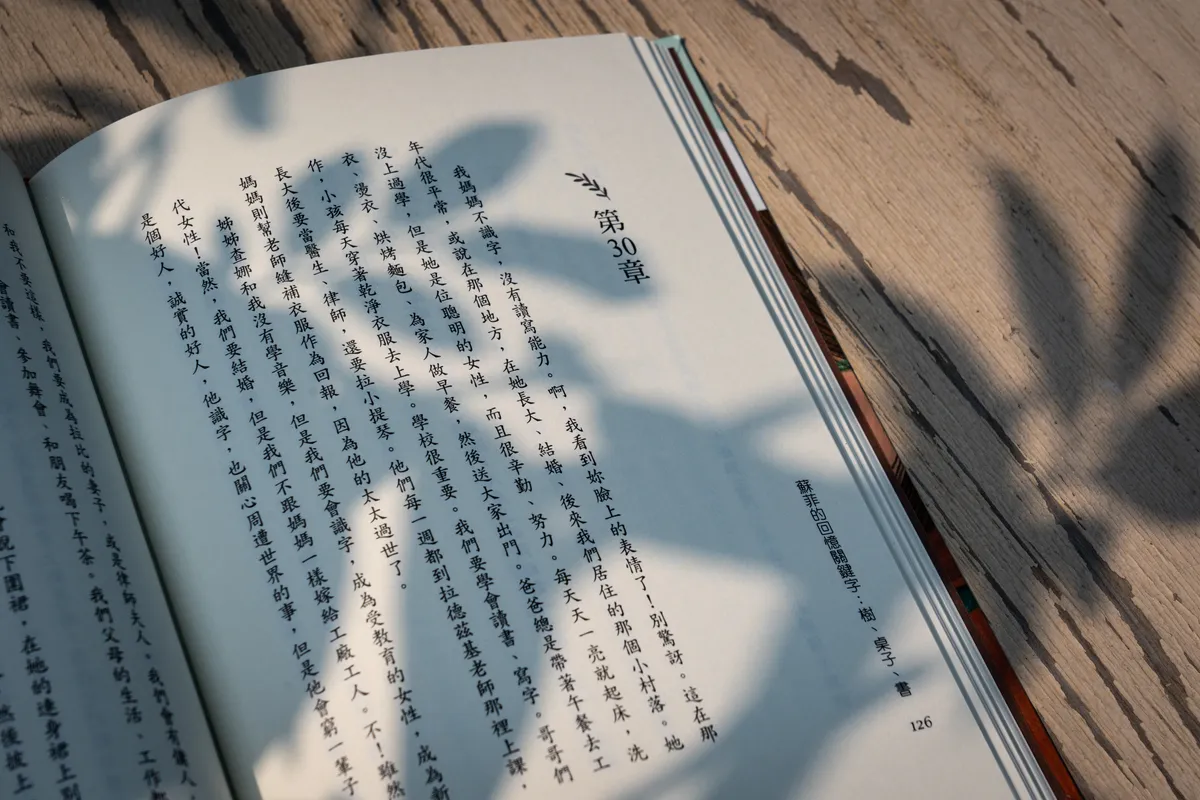 126
蘇菲的回憶關鍵字：樹、桌子、書
第30章
我媽媽不識字，沒有讀寫能力。啊，我看到妳臉上的表情了！別驚訝。這在那
年代很平常，或說在那個地方，在她長大、結婚、後來我們居住的那個小村落。她
沒上過學，但是她是位聰明的女性，而且很辛勤、努力。每天天一亮就起床，洗
衣、燙衣、烘烤麵包、為家人做早餐，然後送大家出門。爸爸總是帶著午餐去工
作，小孩每天穿著乾淨衣服去上學。學校很重要。我們要學會讀書、寫字。哥哥們
長大後要當醫生、律師，還要拉小提琴。他們每一週都到拉德茲基老師那裡上課，
媽媽則幫老師縫補衣服作為回報，因為他的太太過世了。
姊姊查娜和我沒有學音樂，但是我們要會識字，成為受教育的女性，成為新
代女性！當然，我們要結婚，但是我們不跟媽媽一樣嫁給工廠工人。不！雖然
是個好人，誠實的好人，他識字，也關心周遭世界的事，但是他會窮一輩子
和我不要這樣，我們要成為拉比的妻子，或是律師夫人，我們會有傭人，
會讀書、參加舞會、和朋友喝下午茶。我們父母的生活、工作
下圍裙，在她的連身裙上別
然後披上